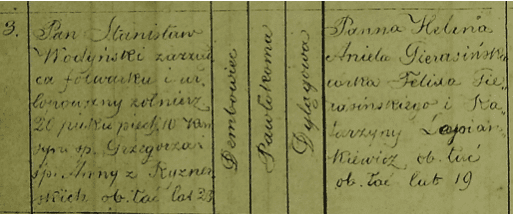 3.
Pan Stanisław
Wodyński zarząd
ca folwarku i ur
lopowany żołnierz
20 pułku piech. w
syn śp. Grzegorza
śp. Anny z Kuzne
ob. łać lat 23
Dembowiec
Pawłokoma
Dylągowa
Panna Helena
Aniela Gierasińska
córka Felixa Gie„
rasińskiego i Ka„
tarzyny
kiewicz ob. łać
ob. łać lat 19